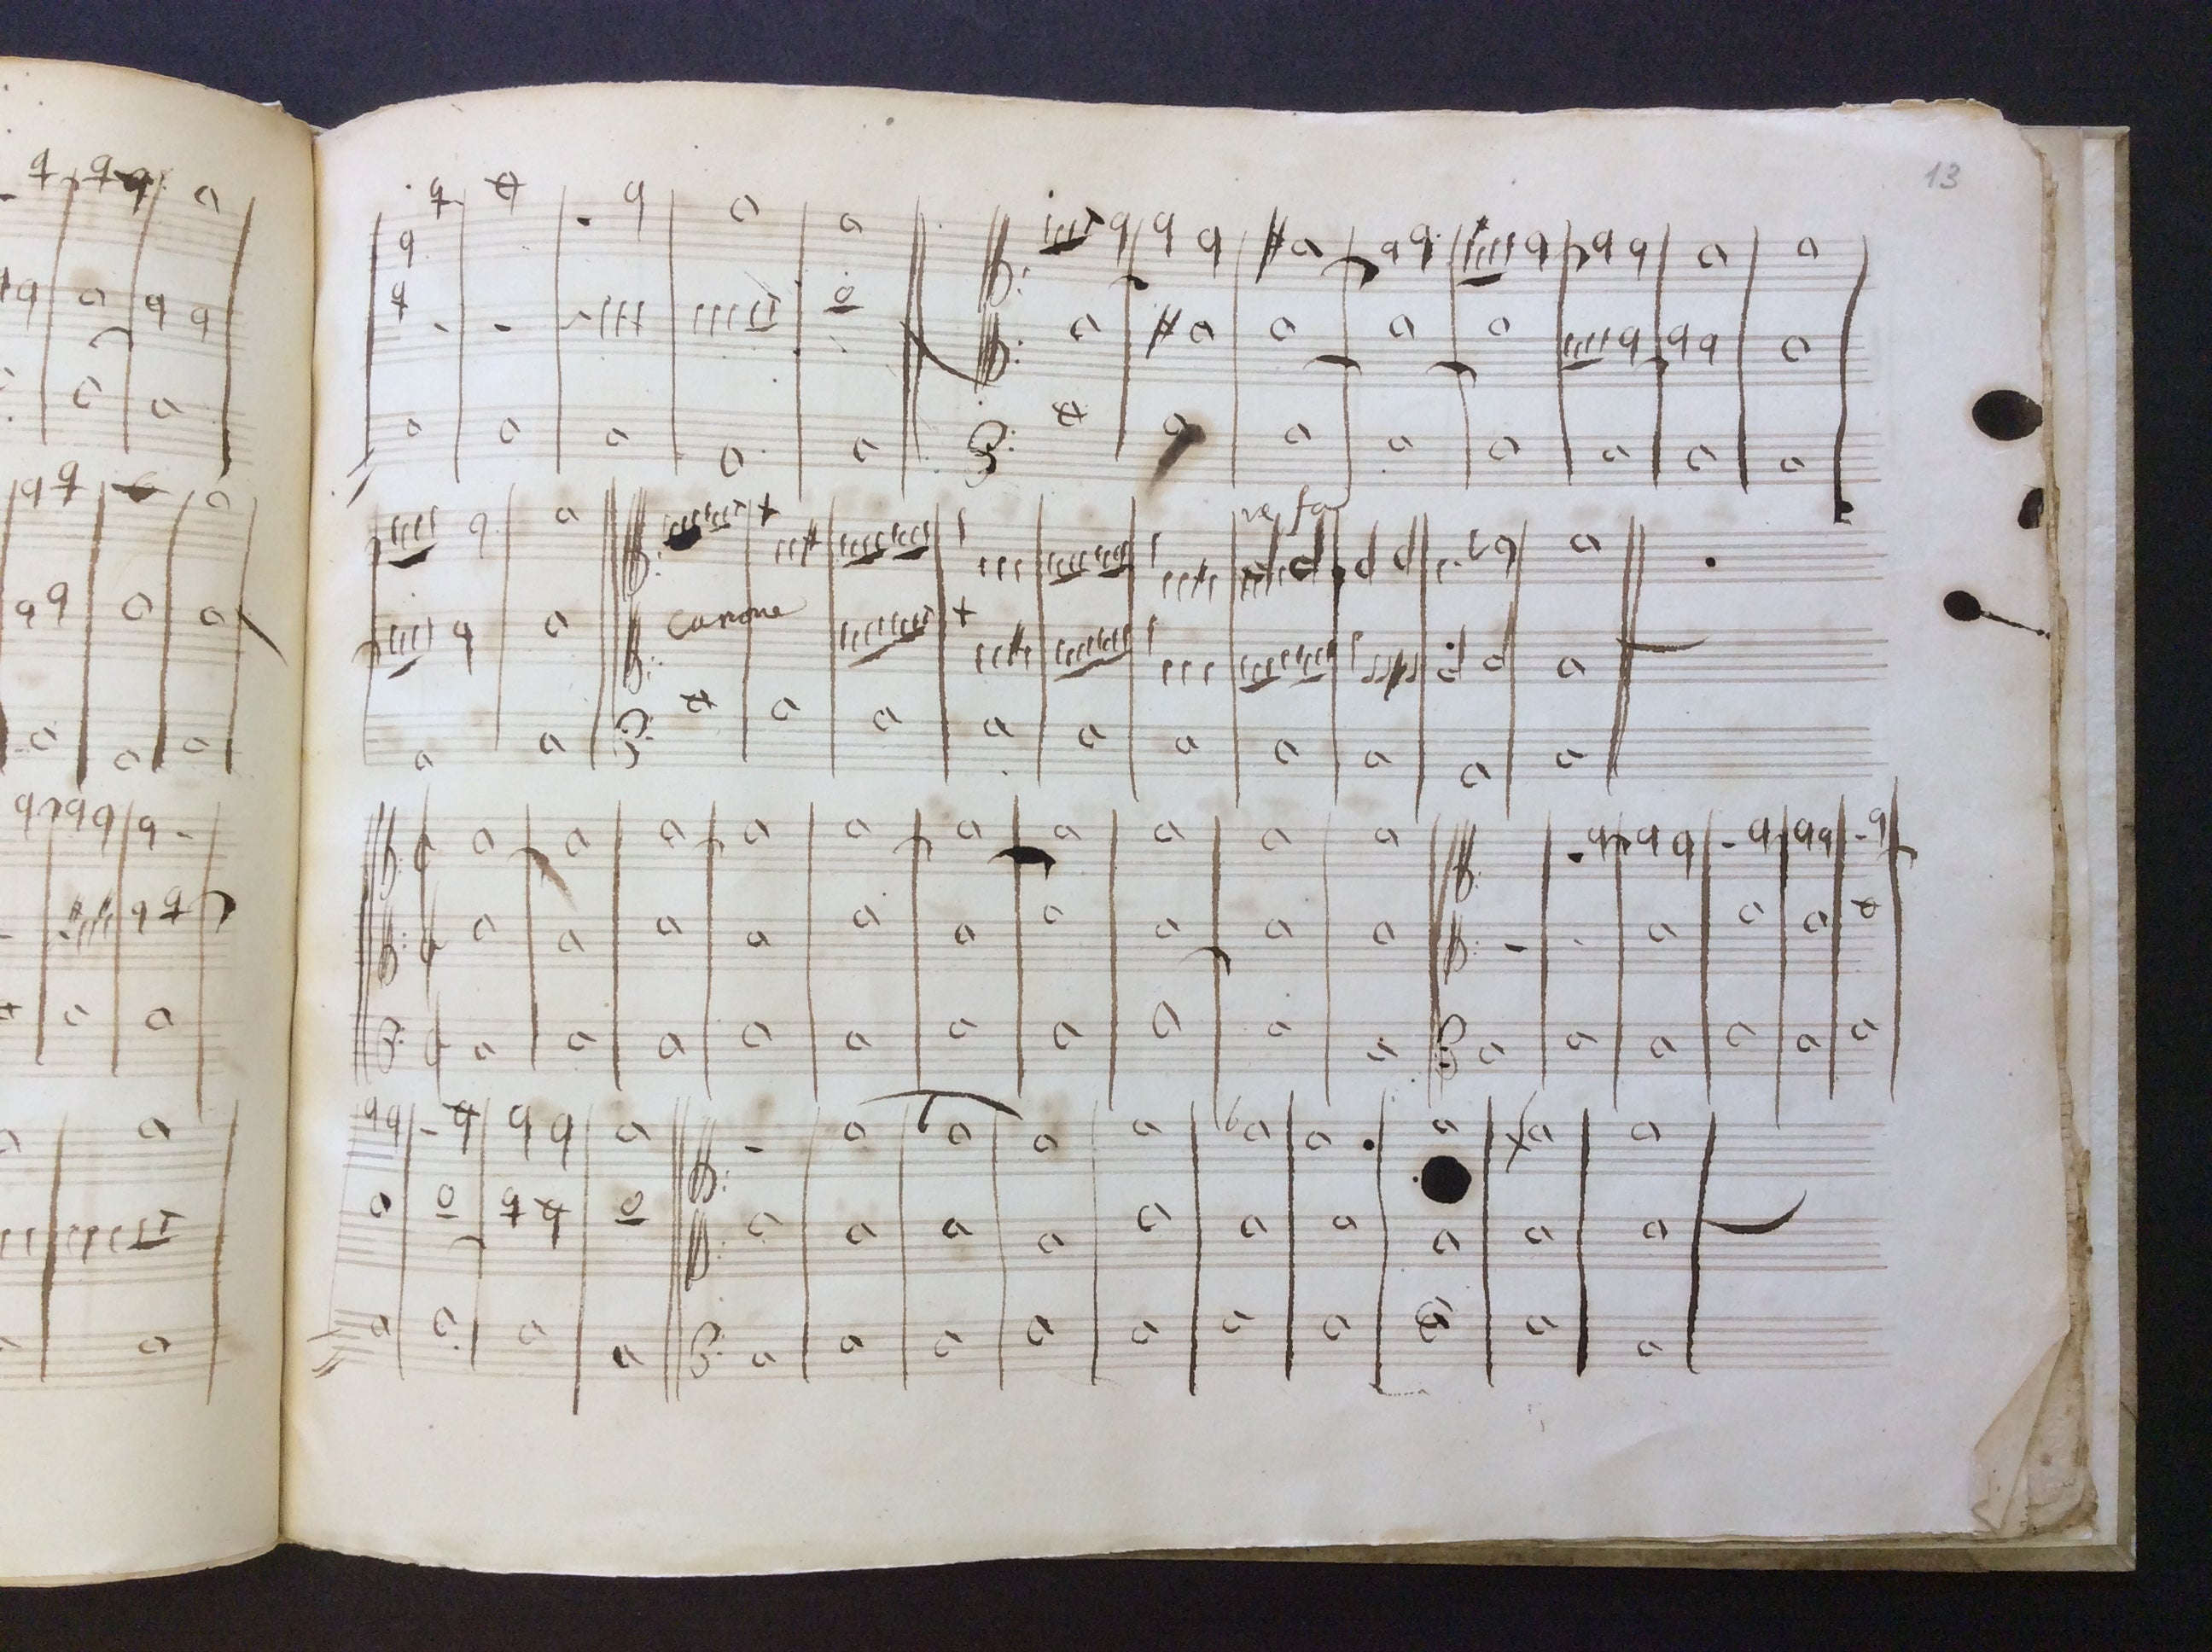 13
re fa
canone